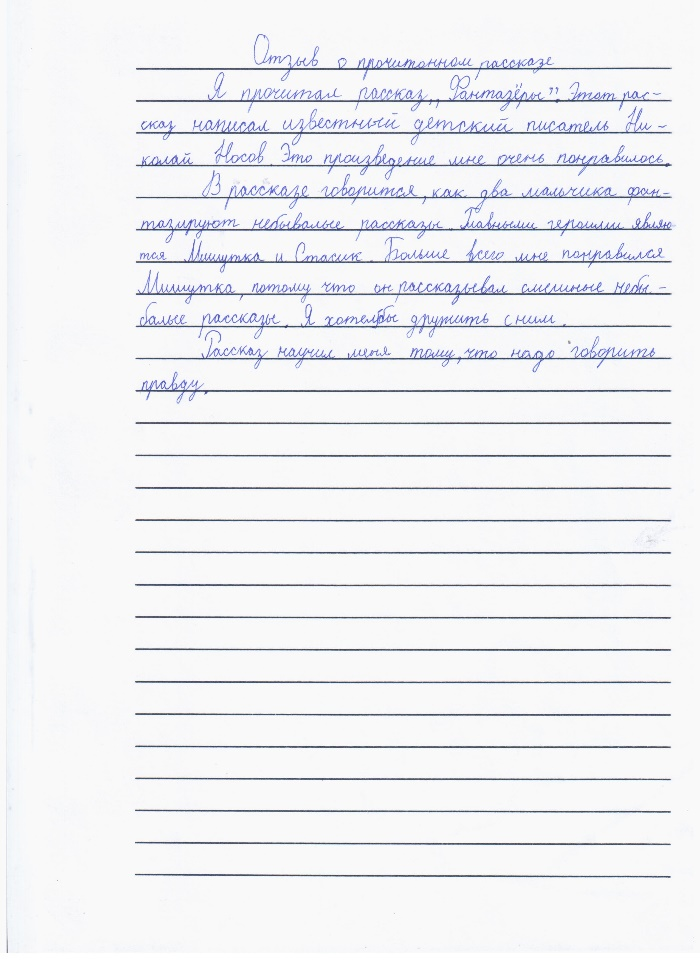 Отзыв о прочитанном рассказе
Я прочитал рассказ „Фантазёры". Этот рас-
сказ написал известный детский писатель Ни-
колай Носов. Это произведение мне очень понравилось.
В рассказе говорится, как два мальчика фан-
тазируют небывалые рассказы. Главными героями являю
тся Мишутка и Стасик. Больше всего мне понравился
Мишутка, потому что он рассказывал смешные небы-
валые рассказы. Я хотел бы дружить с ним.
Рассказ научил меня тому, что надо говорить
правду.